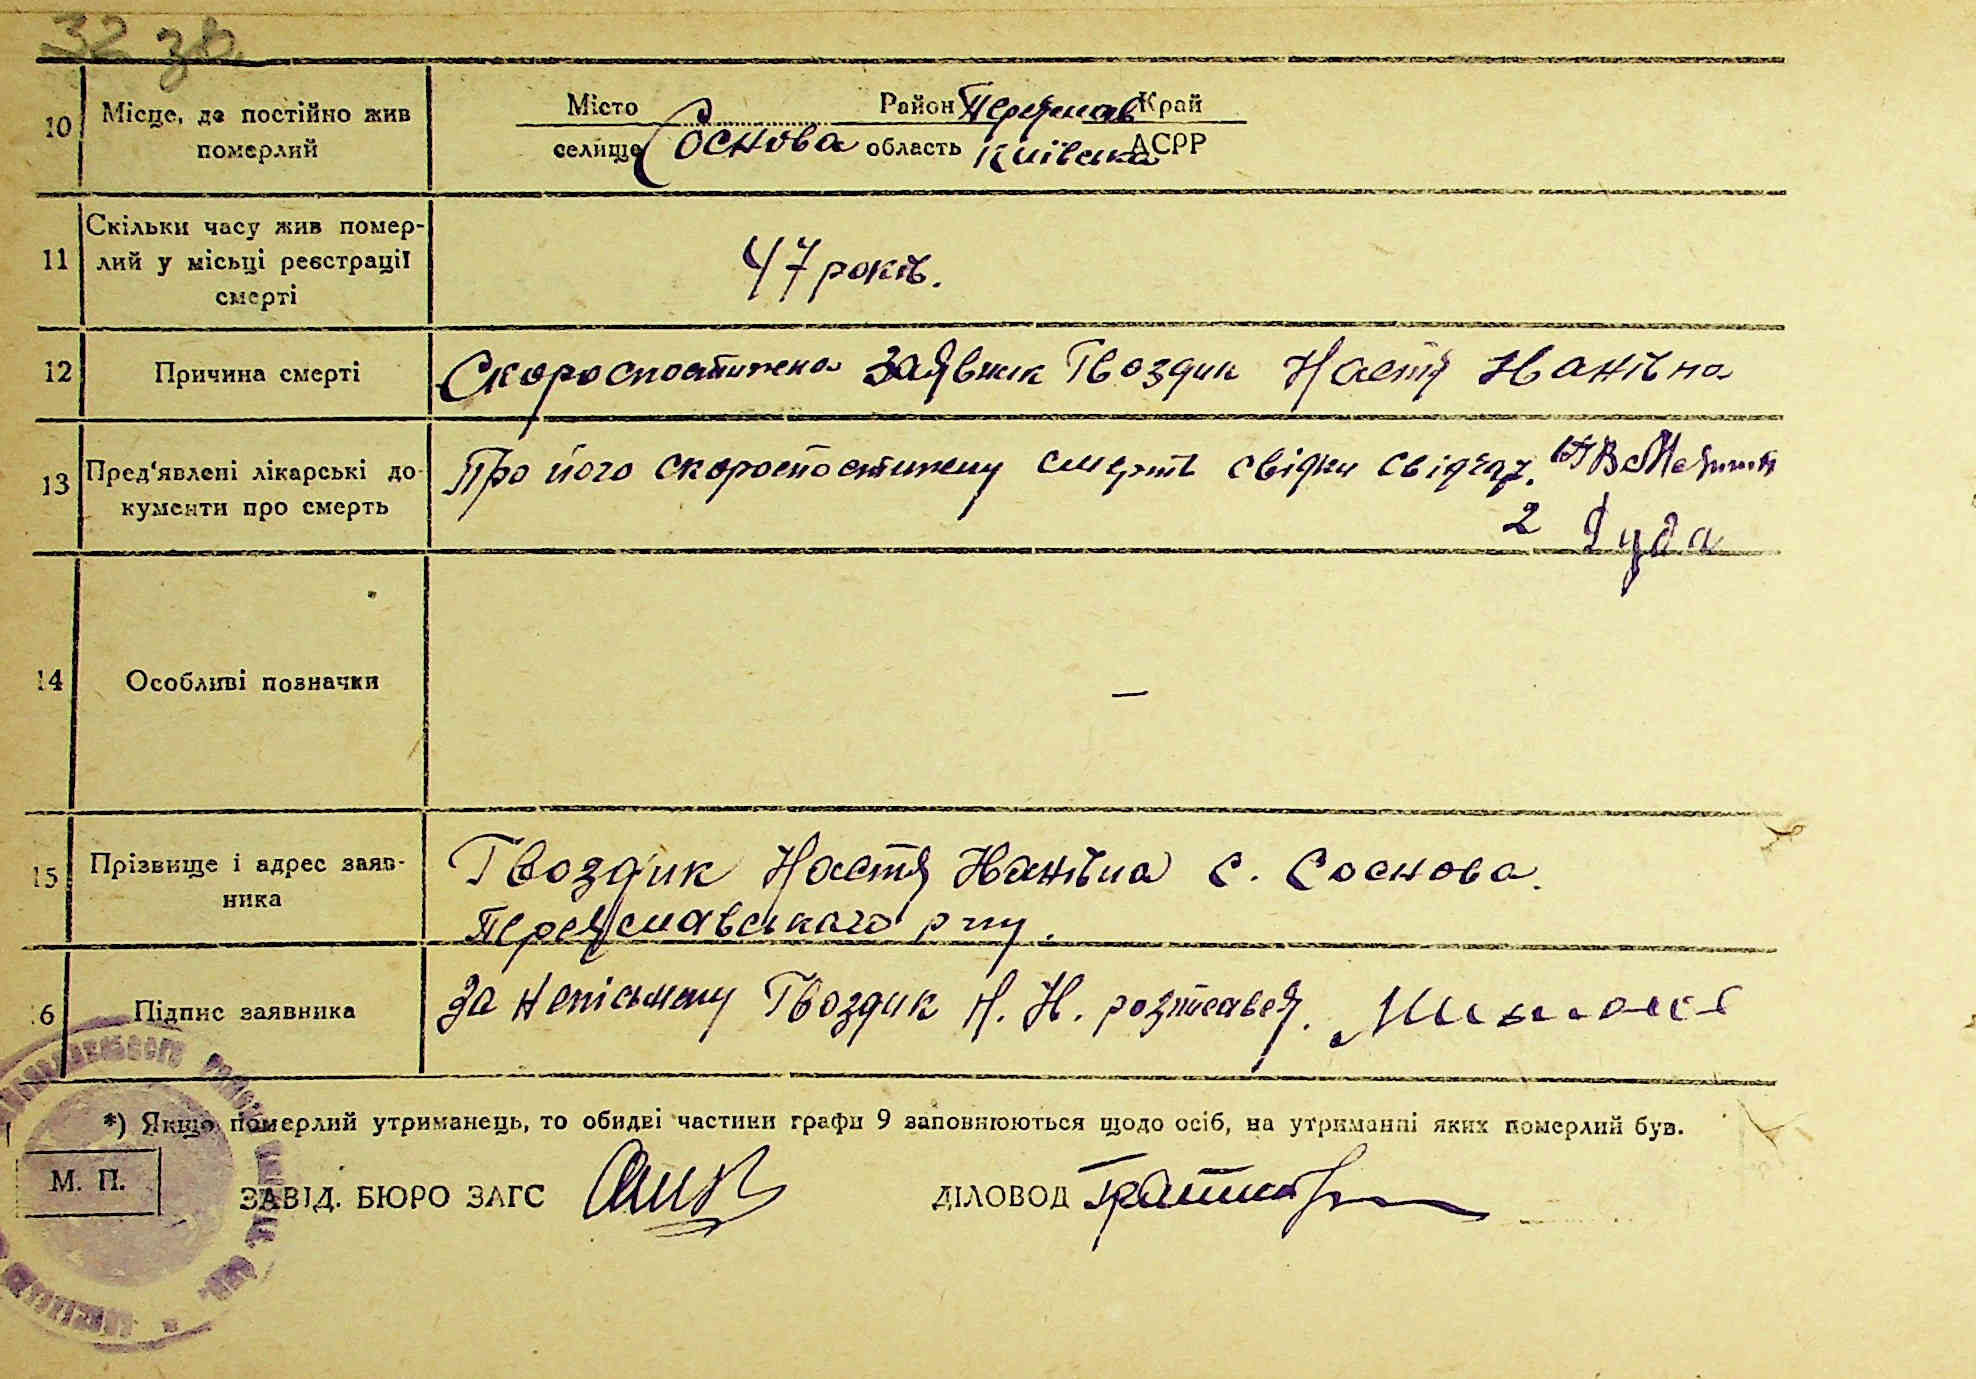 32 зв.
10 Місце, де постійно жив померлий
Місто Район Переяслав Край
селище Соснова область Київська АСРР
11 Скільки часу жив помер-
лий у місьці реєстрації
смерті
47 років.
12 Причина смерті
Скоропостижна заявник Гвоздик Настя Іванівна
13 Пред'явлені лікарські до-
кументи про смерть
Про його скоропостижну смерть свідки свідчать.
2 Дуда
14 Особливі позначки
—
15 Прізвище і адрес заяв-
ника
Гвоздик Настя Іванівна с. Соснова.
Переяславського р-ну.
16 Підпис заявника
За неписьмену Гвоздик Н. И. розписався.
*) Якщо померлий утриманець, то обидві частини графи 9 заповнюються щодо осіб, на утриманні яких померлий був.
М. П.
ЗАВІД. БЮРО ЗАГС
ДІЛОВОД